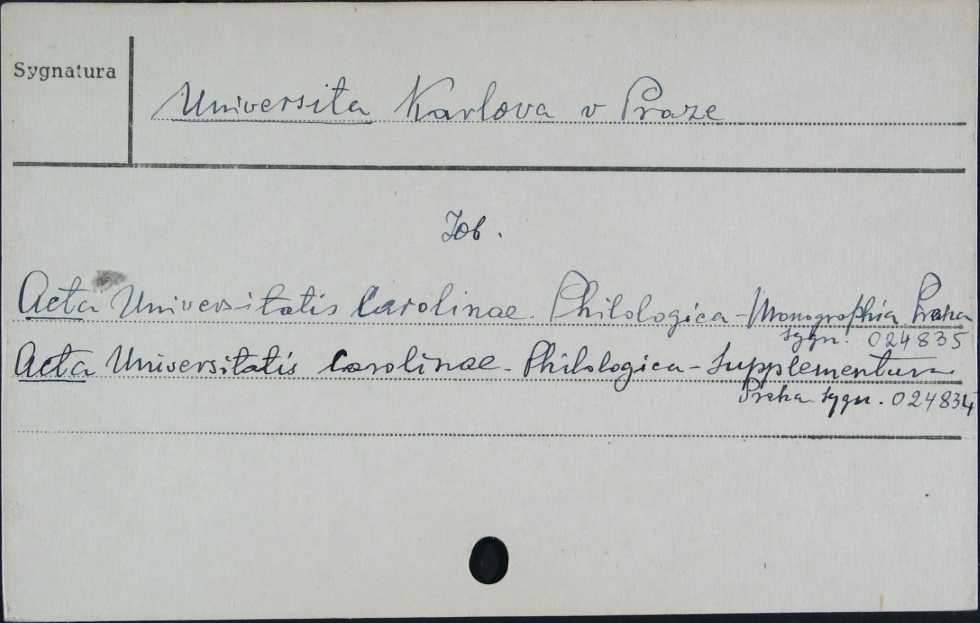 Sygnatura
Universita Karlova v Praze
Zob.
Acta Universitatis Carolinae. Philologica - Monographia Praha
sygn. 024835
Acta Universitatis Carolinae - Philologica - Supplementum
Praha sygn. 024834